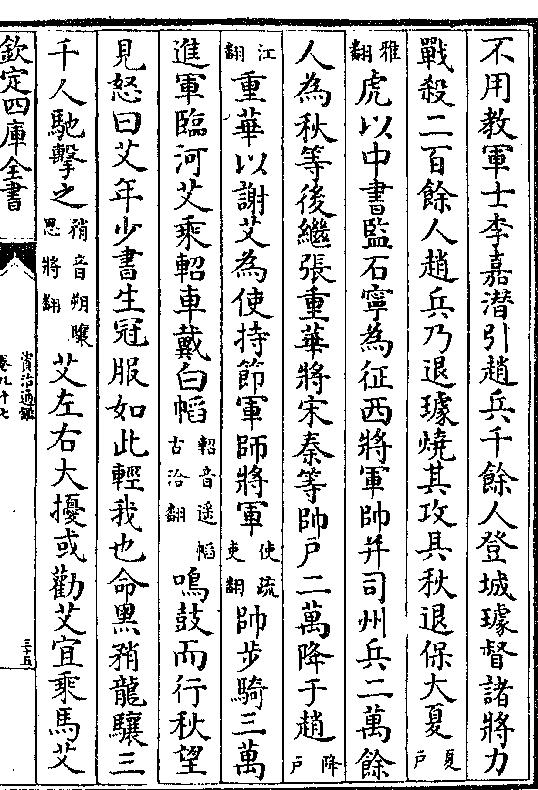 不用教軍士李嘉潛引趙兵千餘人登城璩督諸將力
戰殺二百餘人趙兵乃退璩燒其攻具秋退保大夏夏户
雅翻虎以中書監石寧為征西將軍帥并司州兵二萬餘
人為秋等後繼張重華將宋秦等帥户二萬降于趙降户
江翻重華以謝艾為使持節軍師將軍使疏吏翻帥步騎三萬
進軍臨河艾乘軺車戴白㡊軺音遥㡊古洽翻鳴鼓而行秋望
見怒曰艾年少書生冠服如此輕我也命黑矟龍驤三
千人馳擊之矟音朔驤思將翻艾左右大擾或勸艾宜乘馬艾
欽定四庫全書
資治通鑑
卷九十七
三十五